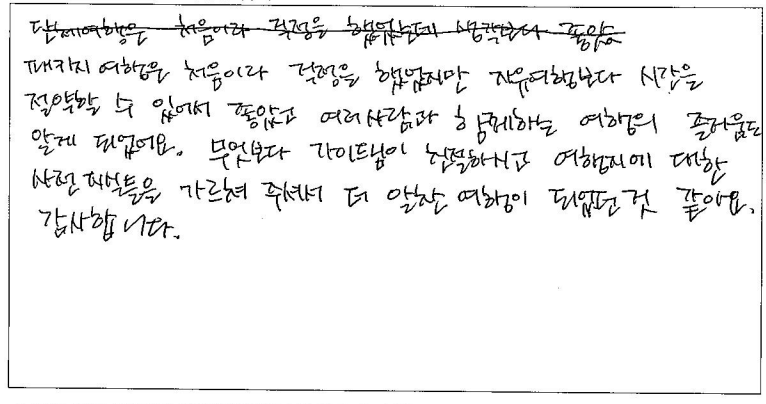 단체여행은 처음이라 걱정을 했었는데 생각보다 좋았음
패키지 여행은 처음이라 걱정을 했었지만 자유여행보다 시간을
절약할 수 있어서 좋았고 여러사람과 함께하는 여행의 즐거움도
알게 되었어요. 무엇보다 가이드님이 친절하시고 여행지에 대한
사전 지식들을 가르쳐 주셔서 더 알찬 여행이 되었던 것 같아요.
감사합니다.